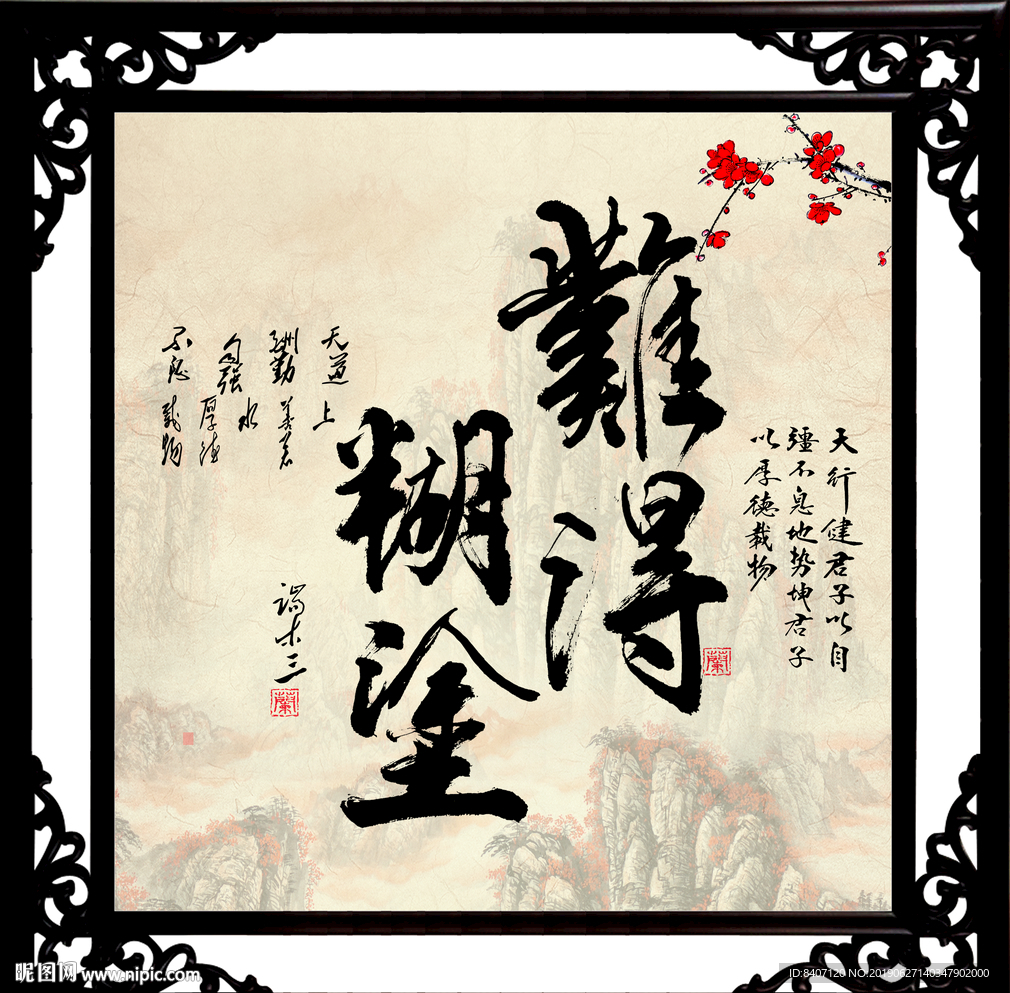 天行健君子以自
彊不息地势坤君子
以厚德载物
難得
糊塗
蘭
天道
酬勤
自强
不息
上
善若
水
厚德
载物
端木三
蘭
昵图网 www.nipic.com
ID:8407120 NO:20190627140347902000